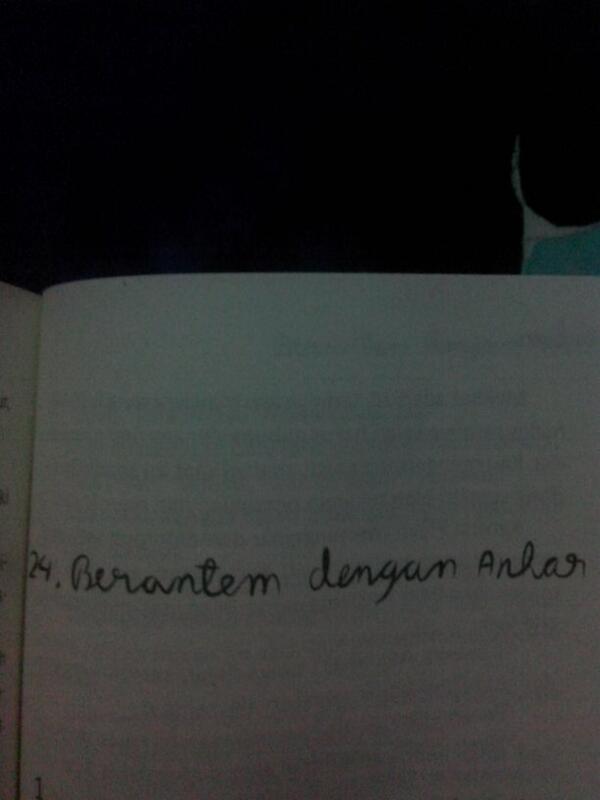 24. Berantem dengan Anhar
1